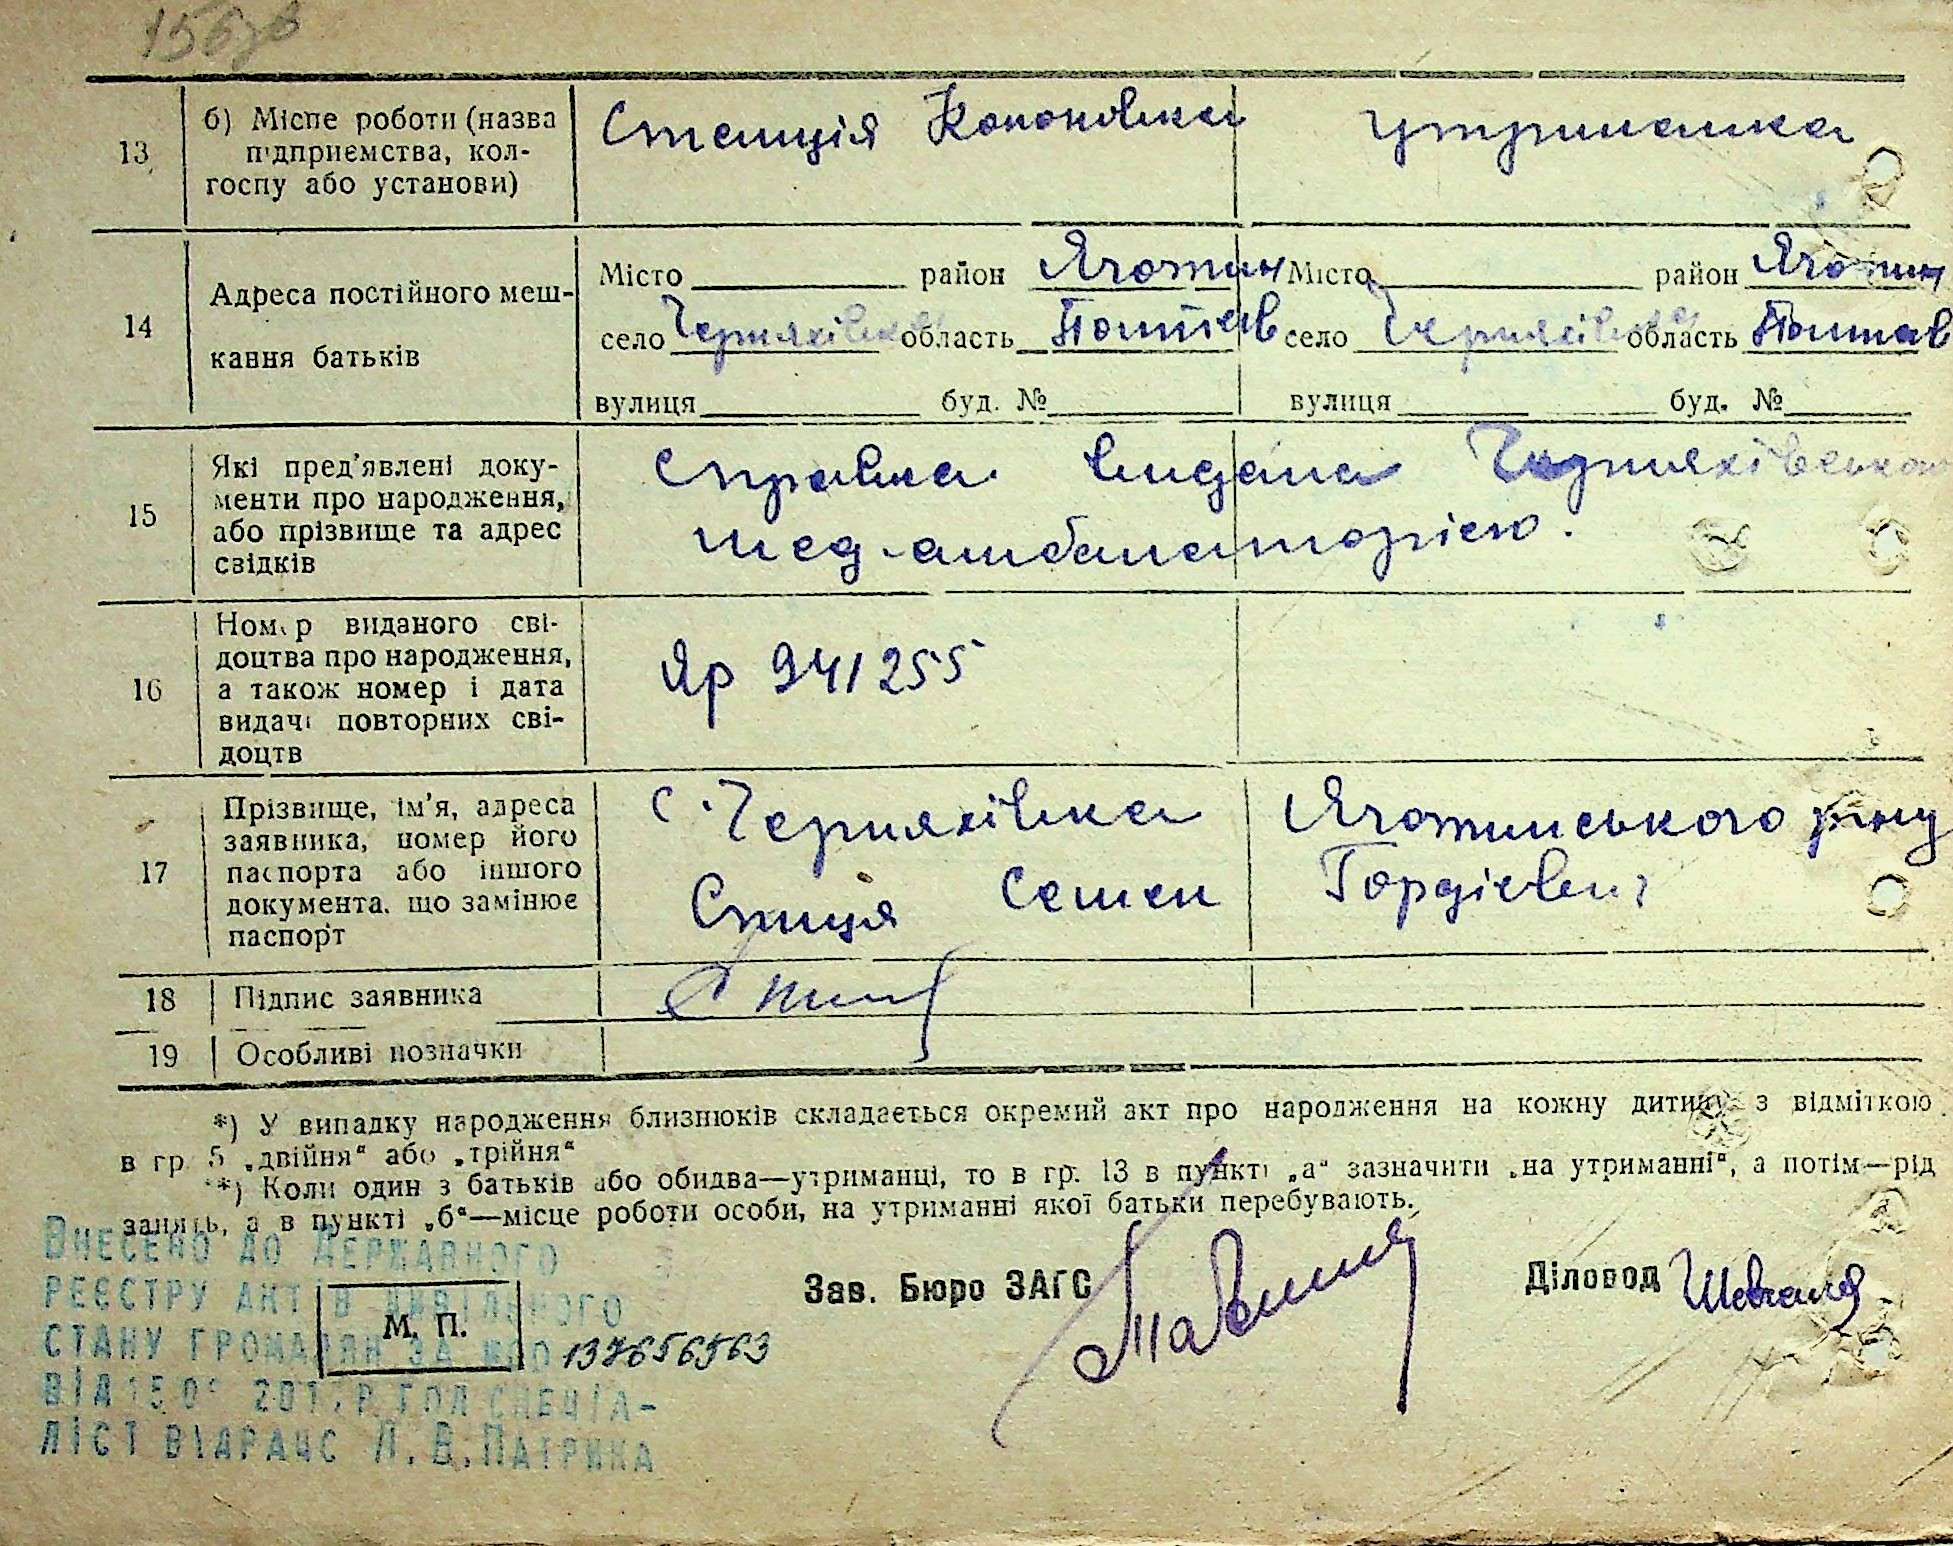 13
б) Місце роботи (назва підприємства, колгоспу або установи)
Станція Кононівка
утриманка
14
Адреса постійного мешкання батьків
Місто район Яготин
село Черняхівка область Полтав
вулиця буд. №
Місто район Яготин
село Черняхівка область Полтав
вулиця буд. №
15
Які пред'явлені документи про народження, або прізвище та адрес свідків
Справка видана Черняхівською
мед-амбулаторією.
16
Номер виданого свідоцтва про народження, а також номер і дата видачі повторних свідоцтв
Яр 941255
17
Прізвище, ім'я, адреса заявника, номер його паспорта або іншого документа, що замінює паспорт
с. Черняхівка Яготинського р-ну
Спиця Семен Гордієвич
18
Підпис заявника
19
Особливі позначки
*) У випадку народження близнюків складається окремий акт про народження на кожну дитину з відміткою
в гр. 5 „двійня“ або „трійня“
**) Коли один з батьків або обидва—утриманці, то в гр. 13 в пункті „а“ зазначити „на утриманні“, а потім—рід
занять, а в пункті „б“—місце роботи особи, на утриманні якої батьки перебувають.
Внесено до Державного
реєстру актів цивільного
стану громадян за №
М. П.
Зав. Бюро ЗАГС
Діловод
ліст відрацс Л. В. Патрика